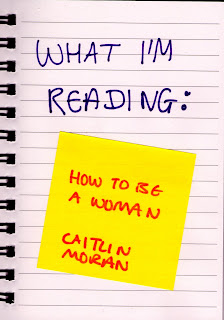 WHAT I'M
READING:
HOW TO BE
A WOMAN
CAITLIN
MORAN